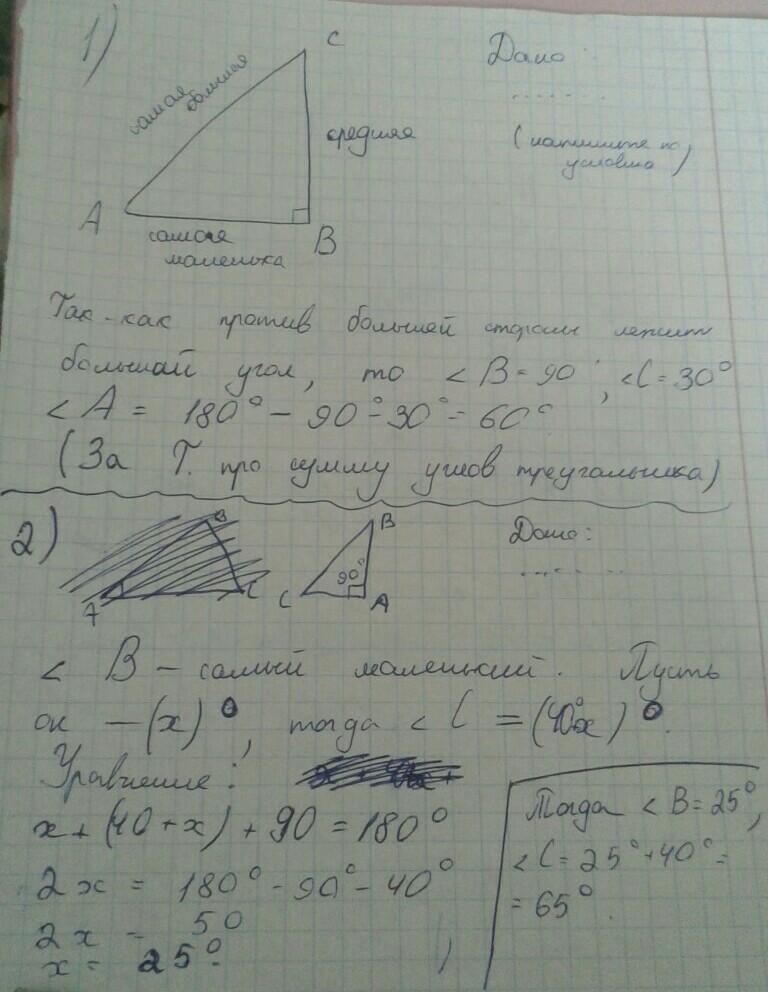 1)
C
Дано:
......
(напишите по
условию)
самая
большая
средняя
A
B
самая
маленька
Так-как против большей стороны лежит
большой угол, то <B=90°, <C=30°
<A= 180°-90°-30°=60°.
(За Т. про сумму углов треугольника)
2)
B
A
C
B
90°
C
A
Дано:
........
< B - самый маленький. Пусть
он -(x)°, тогда < C =(40+x)°.
Уравнение:
x+(40+x)+90=180°
2x= 180°-90°-40°
2x = 50
x= 25°
Тогда <B=25°,
<C=25°+40°=
=65°.